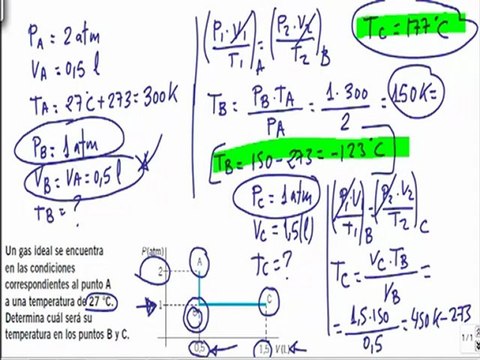 P_A = 2 atm
V_A = 0,5 l
T_A = 27°C + 273 = 300K
P_B = 1 atm
V_B = V_A = 0,5 l
t_B = ?
Un gas ideal se encuentra
en las condiciones
correspondientes al punto A
a una temperatura de 27 °C.
Determina cuál será su
temperatura en los puntos B y C.
P(atm)
2
1
A
B
C
0,5
1,5
V(l)
(P_1 · V_1 / T_1)_A = (P_2 · V_2 / T_2)_B
T_C = 177°C
T_B = P_B · T_A / P_A = 1 · 300 / 2 = 150K =
T_B = 150 - 273 = -123°C
P_C = 1 atm
V_C = 1,5 (l)
t_C = ?
(P_1 · V_1 / T_1)_B = (P_2 · V_2 / T_2)_C
T_C = V_C · T_B / V_B =
= 1,5 · 150 / 0,5 = 450K - 273
1/1